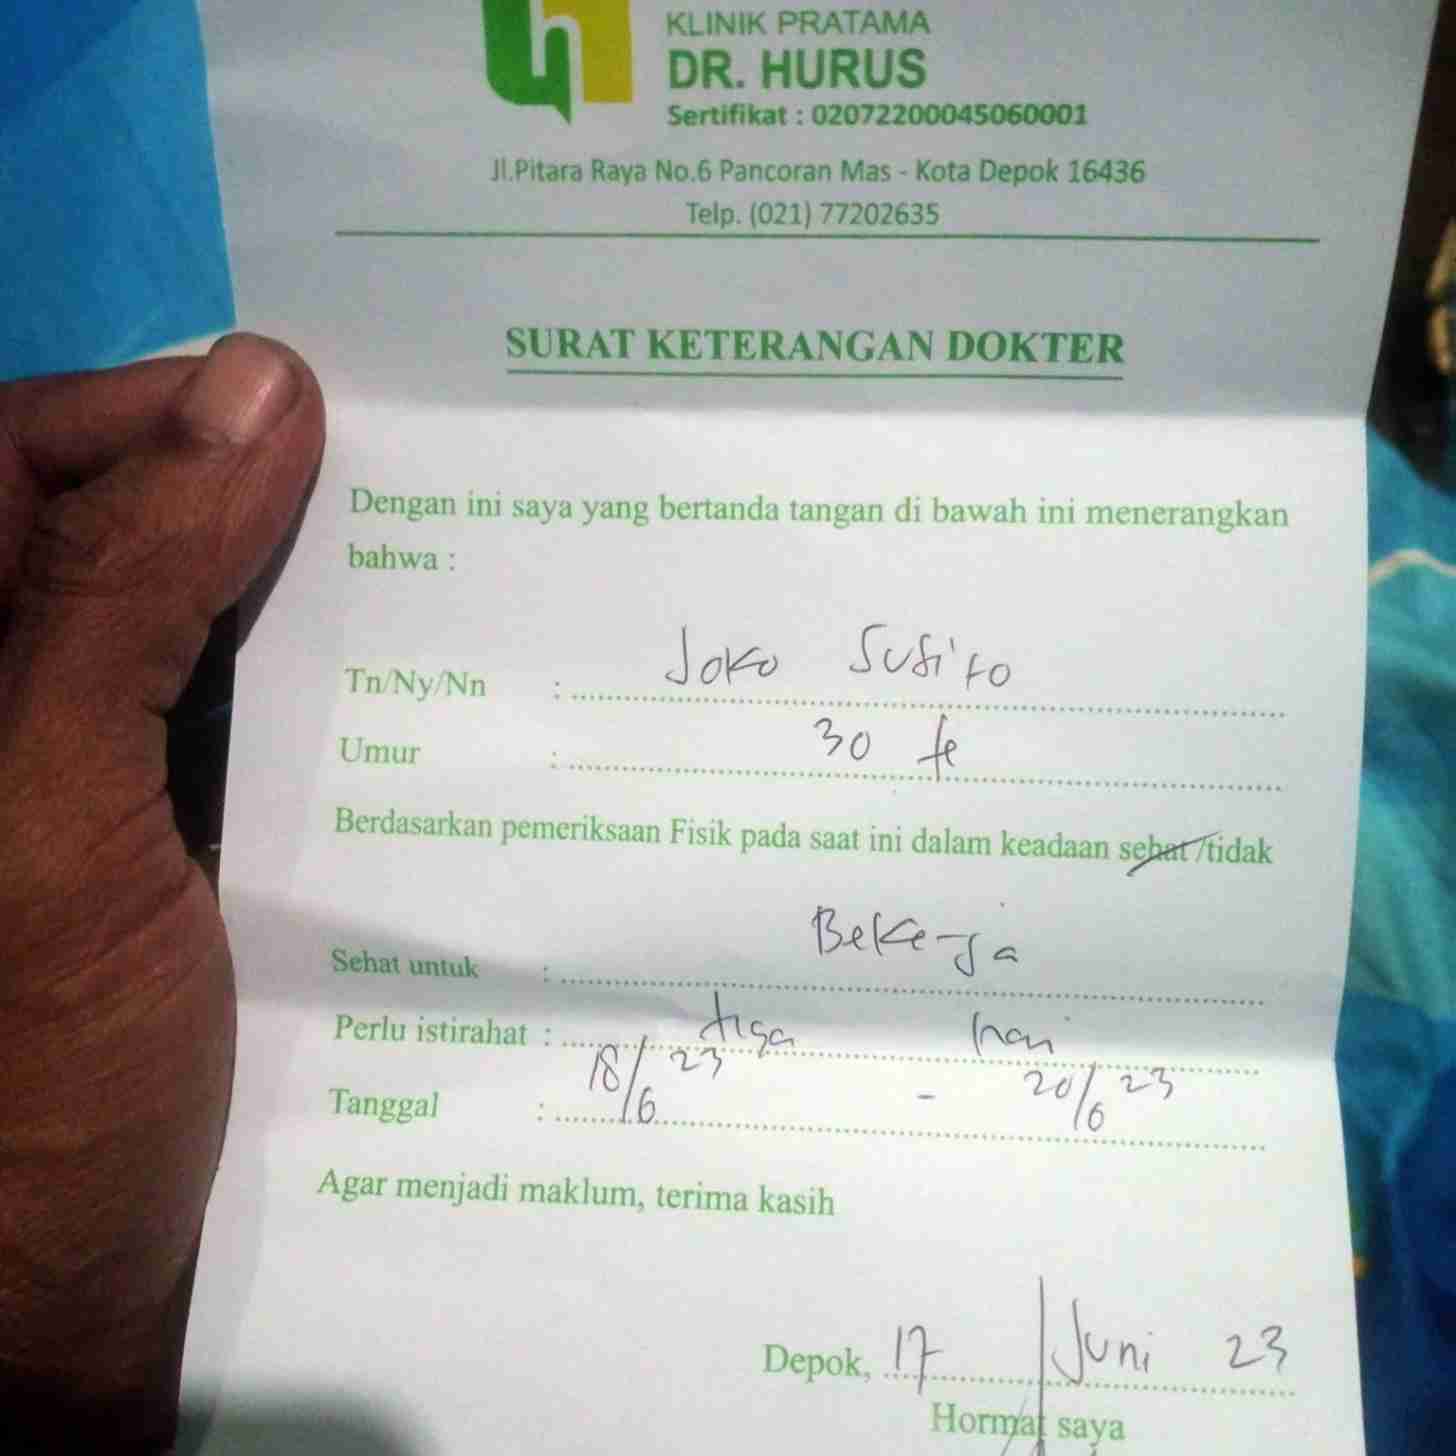 KLINIK PRATAMA
DR. HURUS
Sertifikat : 02072200045060001
Jl.Pitara Raya No.6 Pancoran Mas - Kota Depok 16436
Telp. (021) 77202635
SURAT KETERANGAN DOKTER
Dengan ini saya yang bertanda tangan di bawah ini menerangkan
bahwa :
Tn/Ny/Nn : Joko
Umur : 30
Berdasarkan pemeriksaan Fisik pada saat ini dalam keadaan sehat /tidak
Sehat untuk : Bekerja
Perlu istirahat : tiga hari
Tanggal : 18/6 23 - 20/6 23
Agar menjadi maklum, terima kasih
Depok, 17 Juni 23
Hormat saya